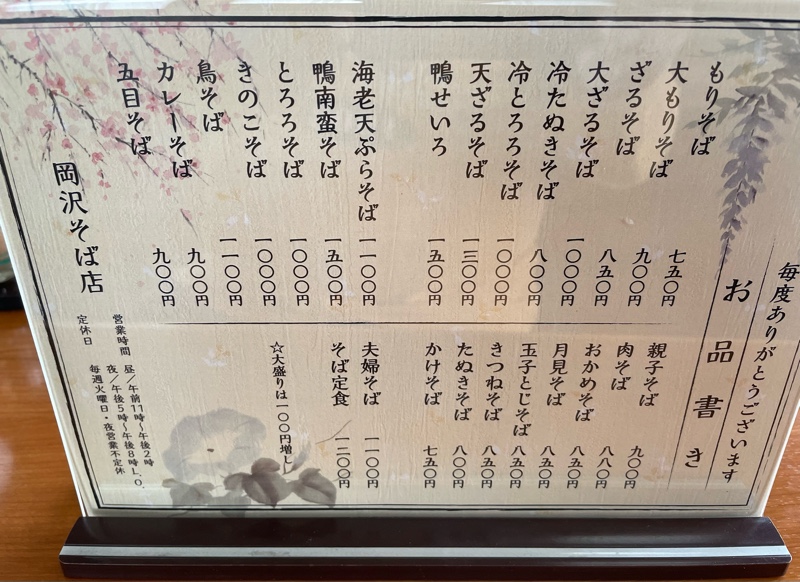 毎度ありがとうございます
お品書き
もりそば 七五〇円
大もりそば 九〇〇円
ざるそば 八五〇円
大ざるそば 一〇〇〇円
冷たぬきそば 八〇〇円
冷とろろそば 一〇〇〇円
天ざるそば 一三〇〇円
鴨せいろ 一五〇〇円
海老天ぷらそば 一一〇〇円
鴨南蛮そば 一五〇〇円
とろろそば 一〇〇〇円
きのこそば 一〇〇〇円
鳥そば 一一〇〇円
カレーそば 九〇〇円
五目そば 九〇〇円
親子そば 九〇〇円
肉そば 八八〇円
おかめそば 八五〇円
月見そば 八五〇円
玉子とじそば 八五〇円
きつねそば 八五〇円
たぬきそば 八〇〇円
かけそば 七五〇円
夫婦そば 一一〇〇円
そば定食 一二〇〇円
☆大盛りは一〇〇円増し
岡沢そば店
営業時間 昼/午前11時〜午後2時
夜/午後5時〜午後8時L.O.
定休日 毎週火曜日・夜営業不定休